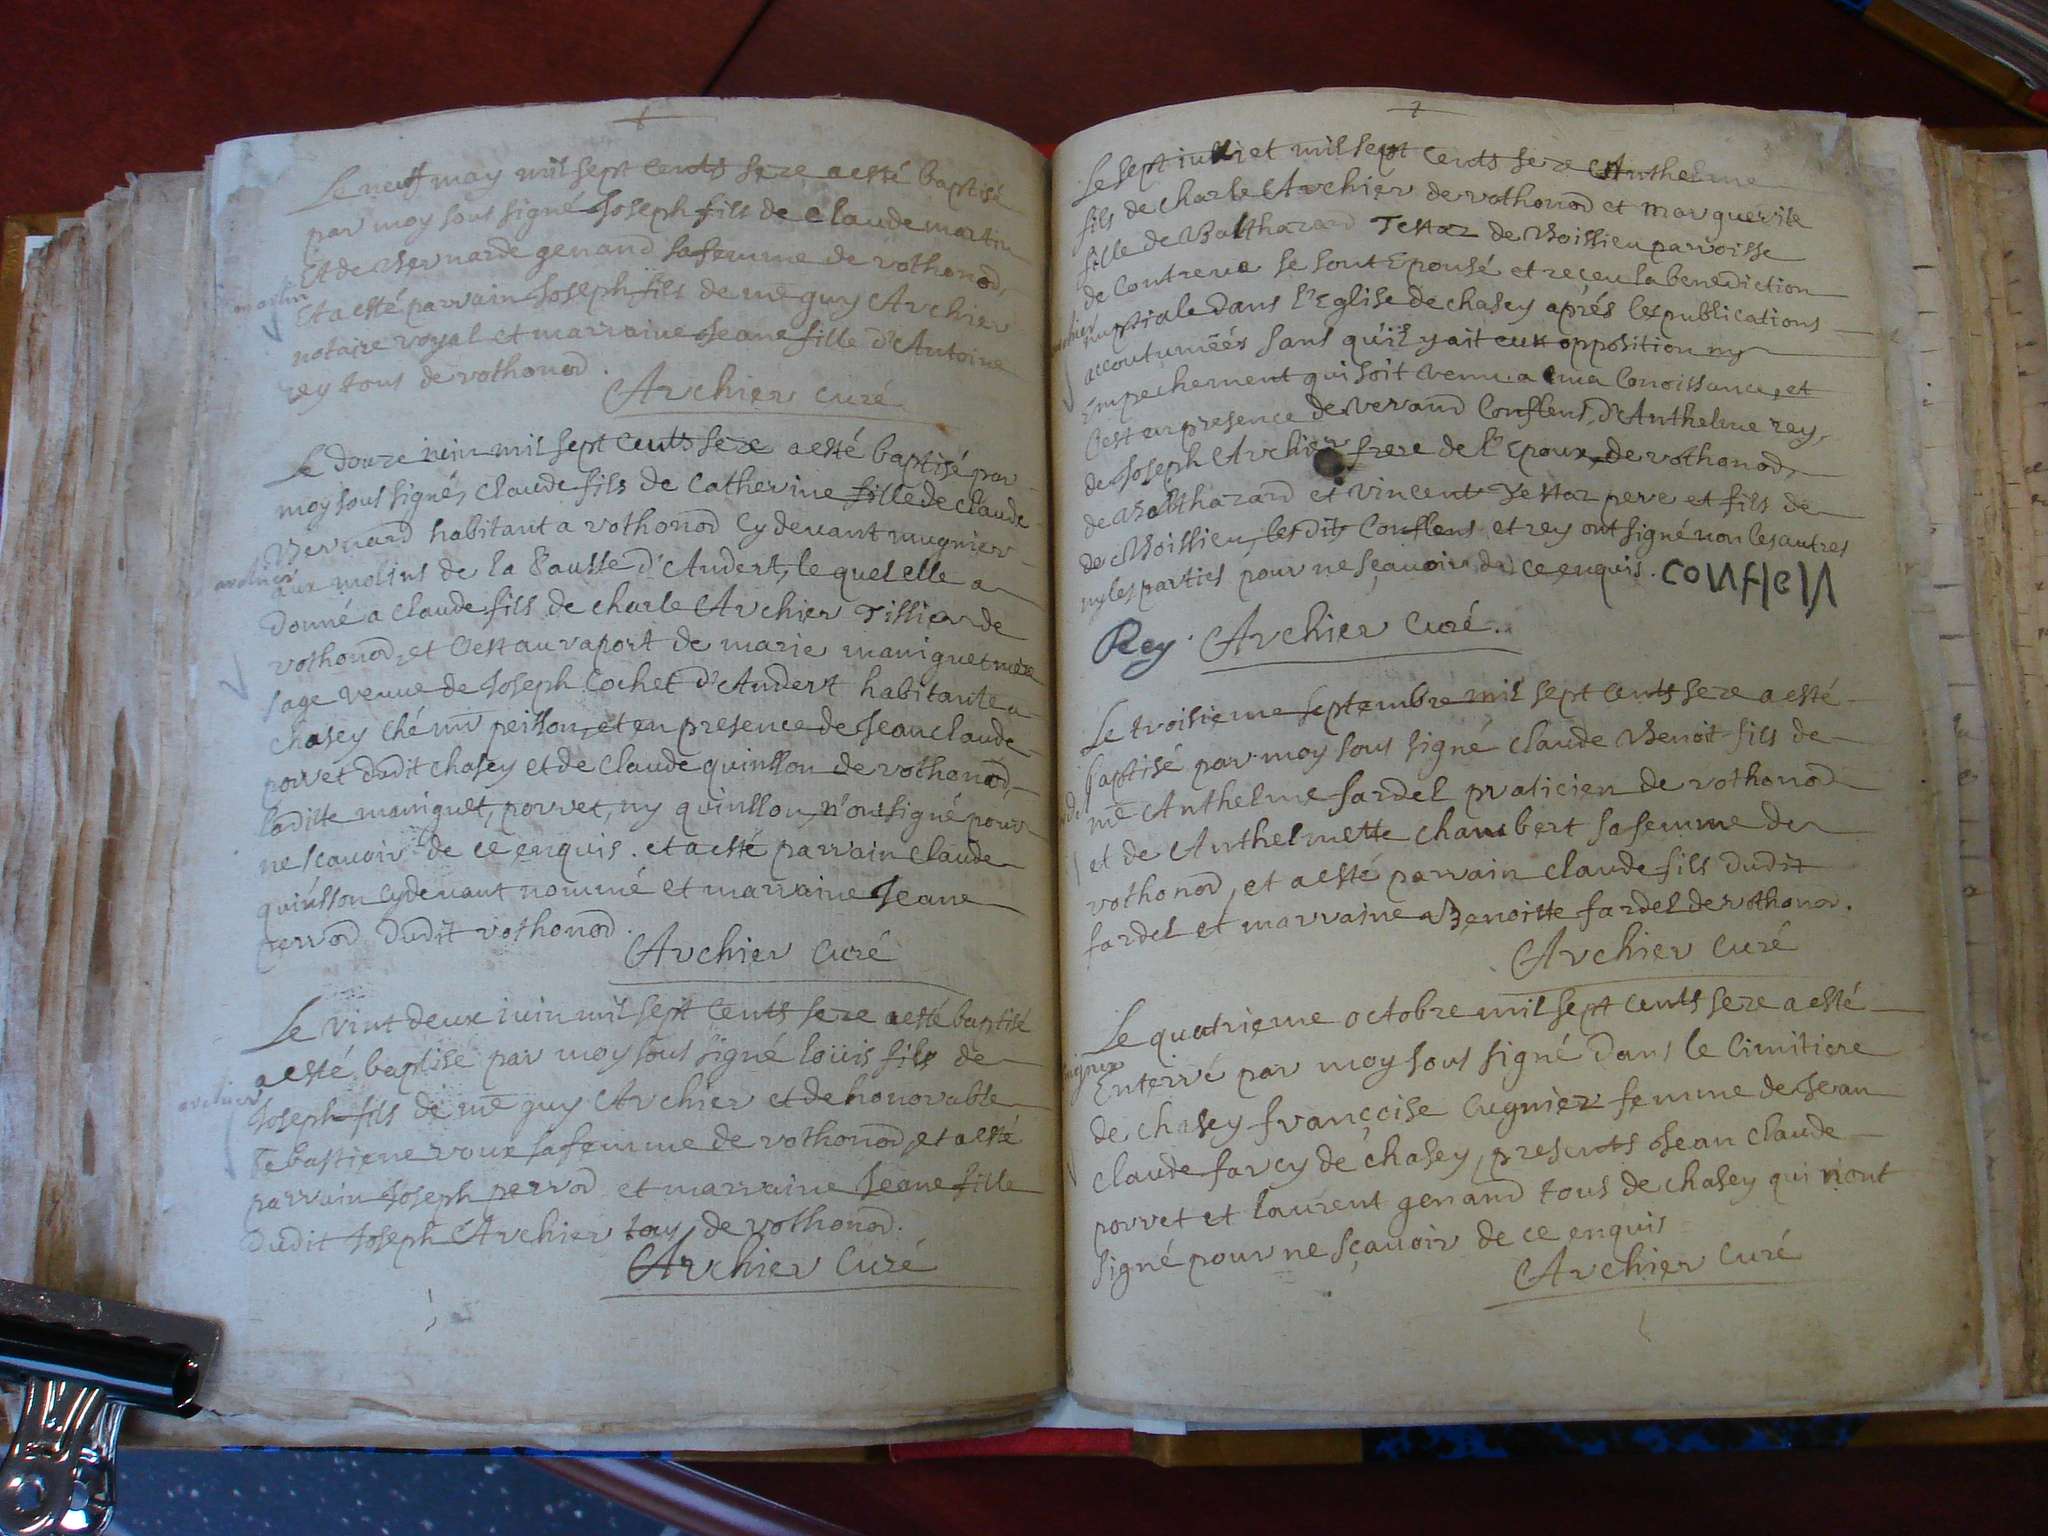 Le neuf may mil sept cents seze a esté baptisé
par moy sous signé Joseph fils de Claude martin
Et de Bernarde genand sa femme de vothonod,
martin
Et a esté parrain Joseph fils de me guy Archier
notaire royal et marraine Jeane fille d'Antoine
rey tous de vothonod.
Archier curé
Le douze iuin mil sept cents seze a esté baptisé par
moy sous signé, claude fils de Catherine fille de claude
Bernard habitant a vothonod cy devant mugnier
archier
aux molins de la Bausse d'Andert, le quel elle a
donné a claude fils de charle Archier Tissier de
vothonod, et c'est au raport de marie maniguet mere
sage veuve de Joseph Cochet d'Andert habitante a
chasey ché mr peisson, et en presence de Jean claude
porret dudit chasey et de claude quinsson de vothonod,
laditte maniguet, porret, ny quinsson n'ont signé pour
ne scavoir de ce enquis. et a esté parrain claude
quinsson cy devant nommé et marraine Jeane
perrod dudit vothonod.
Archier curé
Le vint deux iuin mil sept cents seze a esté baptisé
a esté baptisé par moy sous signé loüis fils de
archier
Joseph fils de me guy Archier et de honorable
Sebastiene roux sa femme de vothonod, et a esté
parrain Joseph perrod et marraine Jeane fille
dudit Joseph Archier tous de vothonod.
Archier Curé
Le sept iuillet mil sept cents seze Anthelme
fils de charle Archier de vothonod et marguerite
fille de Balthazard Testaz de Boissieu parroisse
de Contreve se sont Epousé et receu la benediction
archier
nuptiale dans l'Eglise de chasey aprés les publications
accoutumées sans qu'il y ait eux opposition ny
Empechement qui soit venu a ma Conoissance, et
c'est en presence de verand Conflens, d'Anthelme rey,
de Joseph Archier frere de l'Epoux, de vothonod,
de Balthazard et vincent Testaz pere et fils de
de Boissieu, les dits Conflens et rey ont signé non les autres
ny les parties pour ne sçavoir de ce enquis. conflen
Rey. Archier Curé.
Le troisieme septembre mil sept cents seze a esté
baptisé par moy sous signé claude Benoit fils de
me Anthelme fardel praticien de vothonod
et de Anthelmette chambert sa femme de
vothonod, et a esté parrain claude fils dudit
fardel et marraine Benoitte fardel de vothonod.
Archier Curé
Le quatrieme octobre mil sept cents seze a esté
Enterré par moy sous signé dans le Cimitiere
de chasey françoise Cugnier femme de Jean
claude farcy de chasey, presents Jean claude
porret et laurent genand tous de chasey qui n'ont
signé pour ne sçavoir de ce enquis
Archier Curé